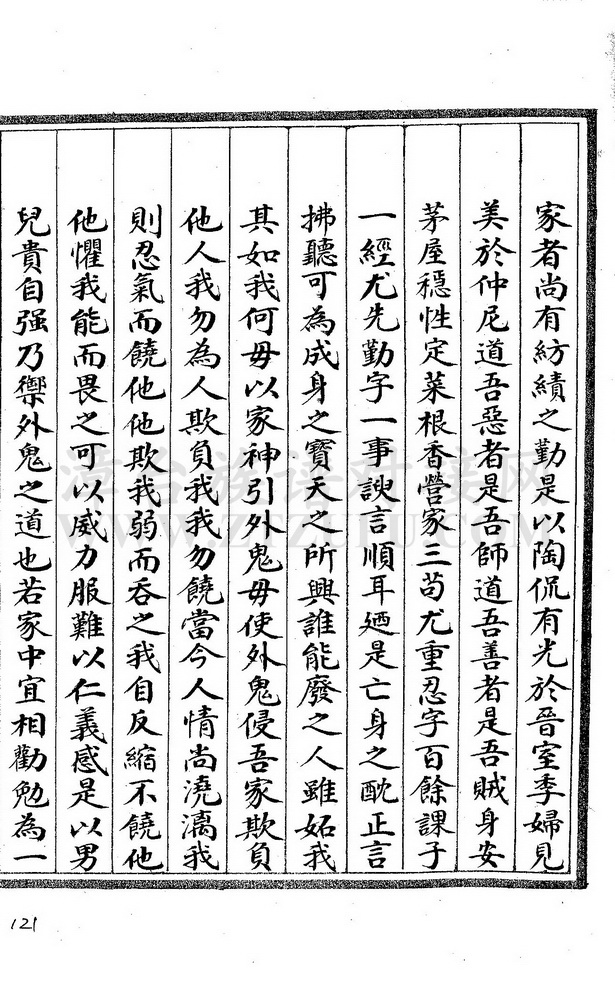 家者尚有紡績之勤是以陶侃有光於晉室季婦見
美於仲尼道吾惡者是吾師道吾善者是吾賊身安
茅屋穩性定菜根香營家三苟尤重忍字百餘課子
一經尤先勤字一事諛言順耳廼是亡身之酖正言
拂聽可為成身之寶天之所興誰能廢之人雖妬我
其如我何毋以家神引外鬼毋使外鬼侵吾家欺負
他人我勿為人欺負我我勿饒當今人情尚澆漓我
則忍氣而饒他他欺我弱而吞之我自反縮不饒他
他懼我能而畏之可以威力服難以仁義感是以男
兒貴自强乃禦外鬼之道也若家中宜相勸勉為一
121